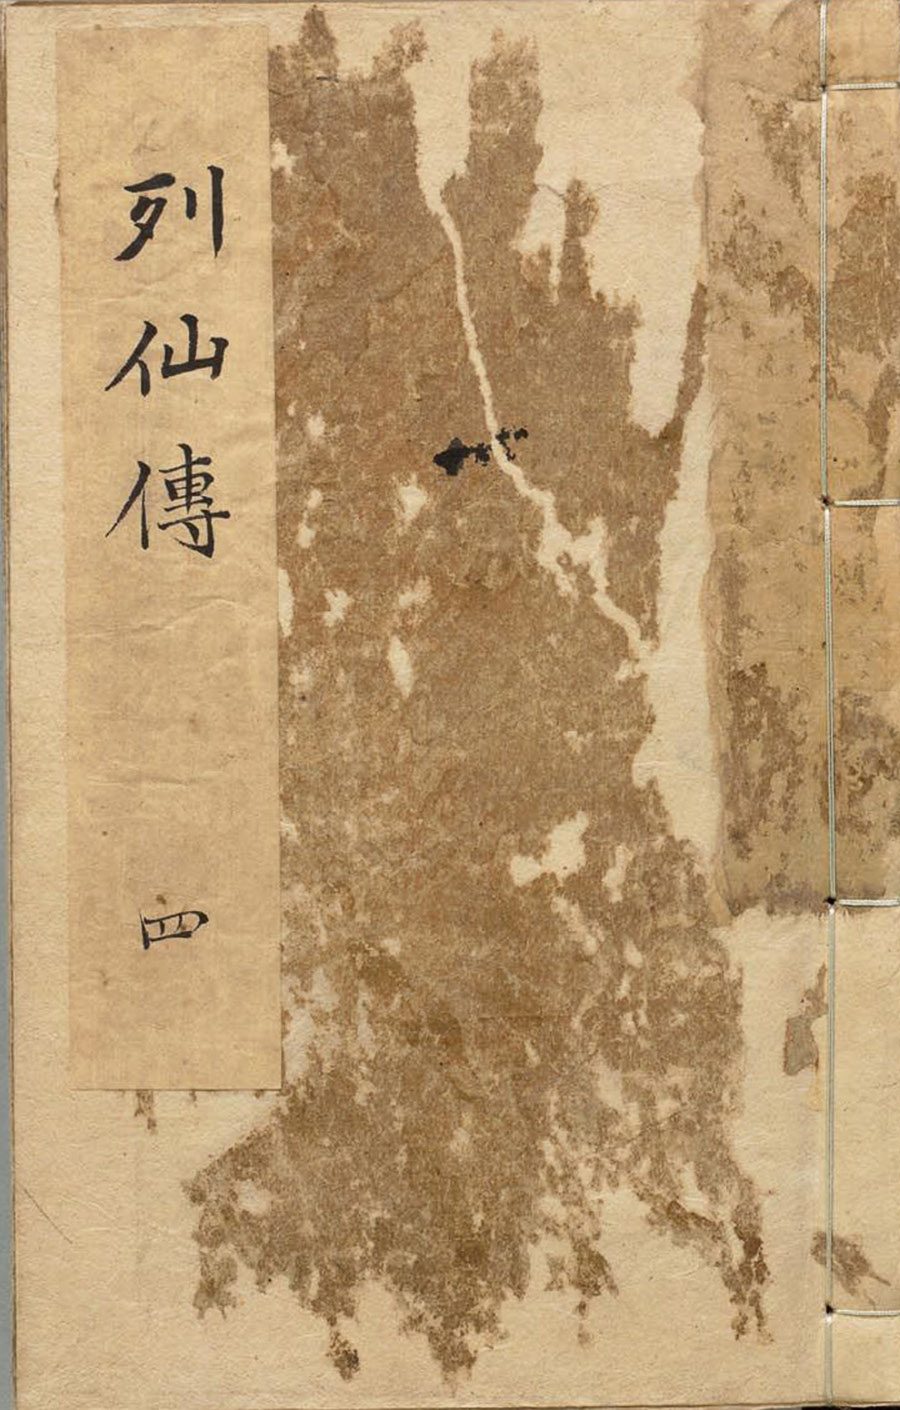 列仙傳
四